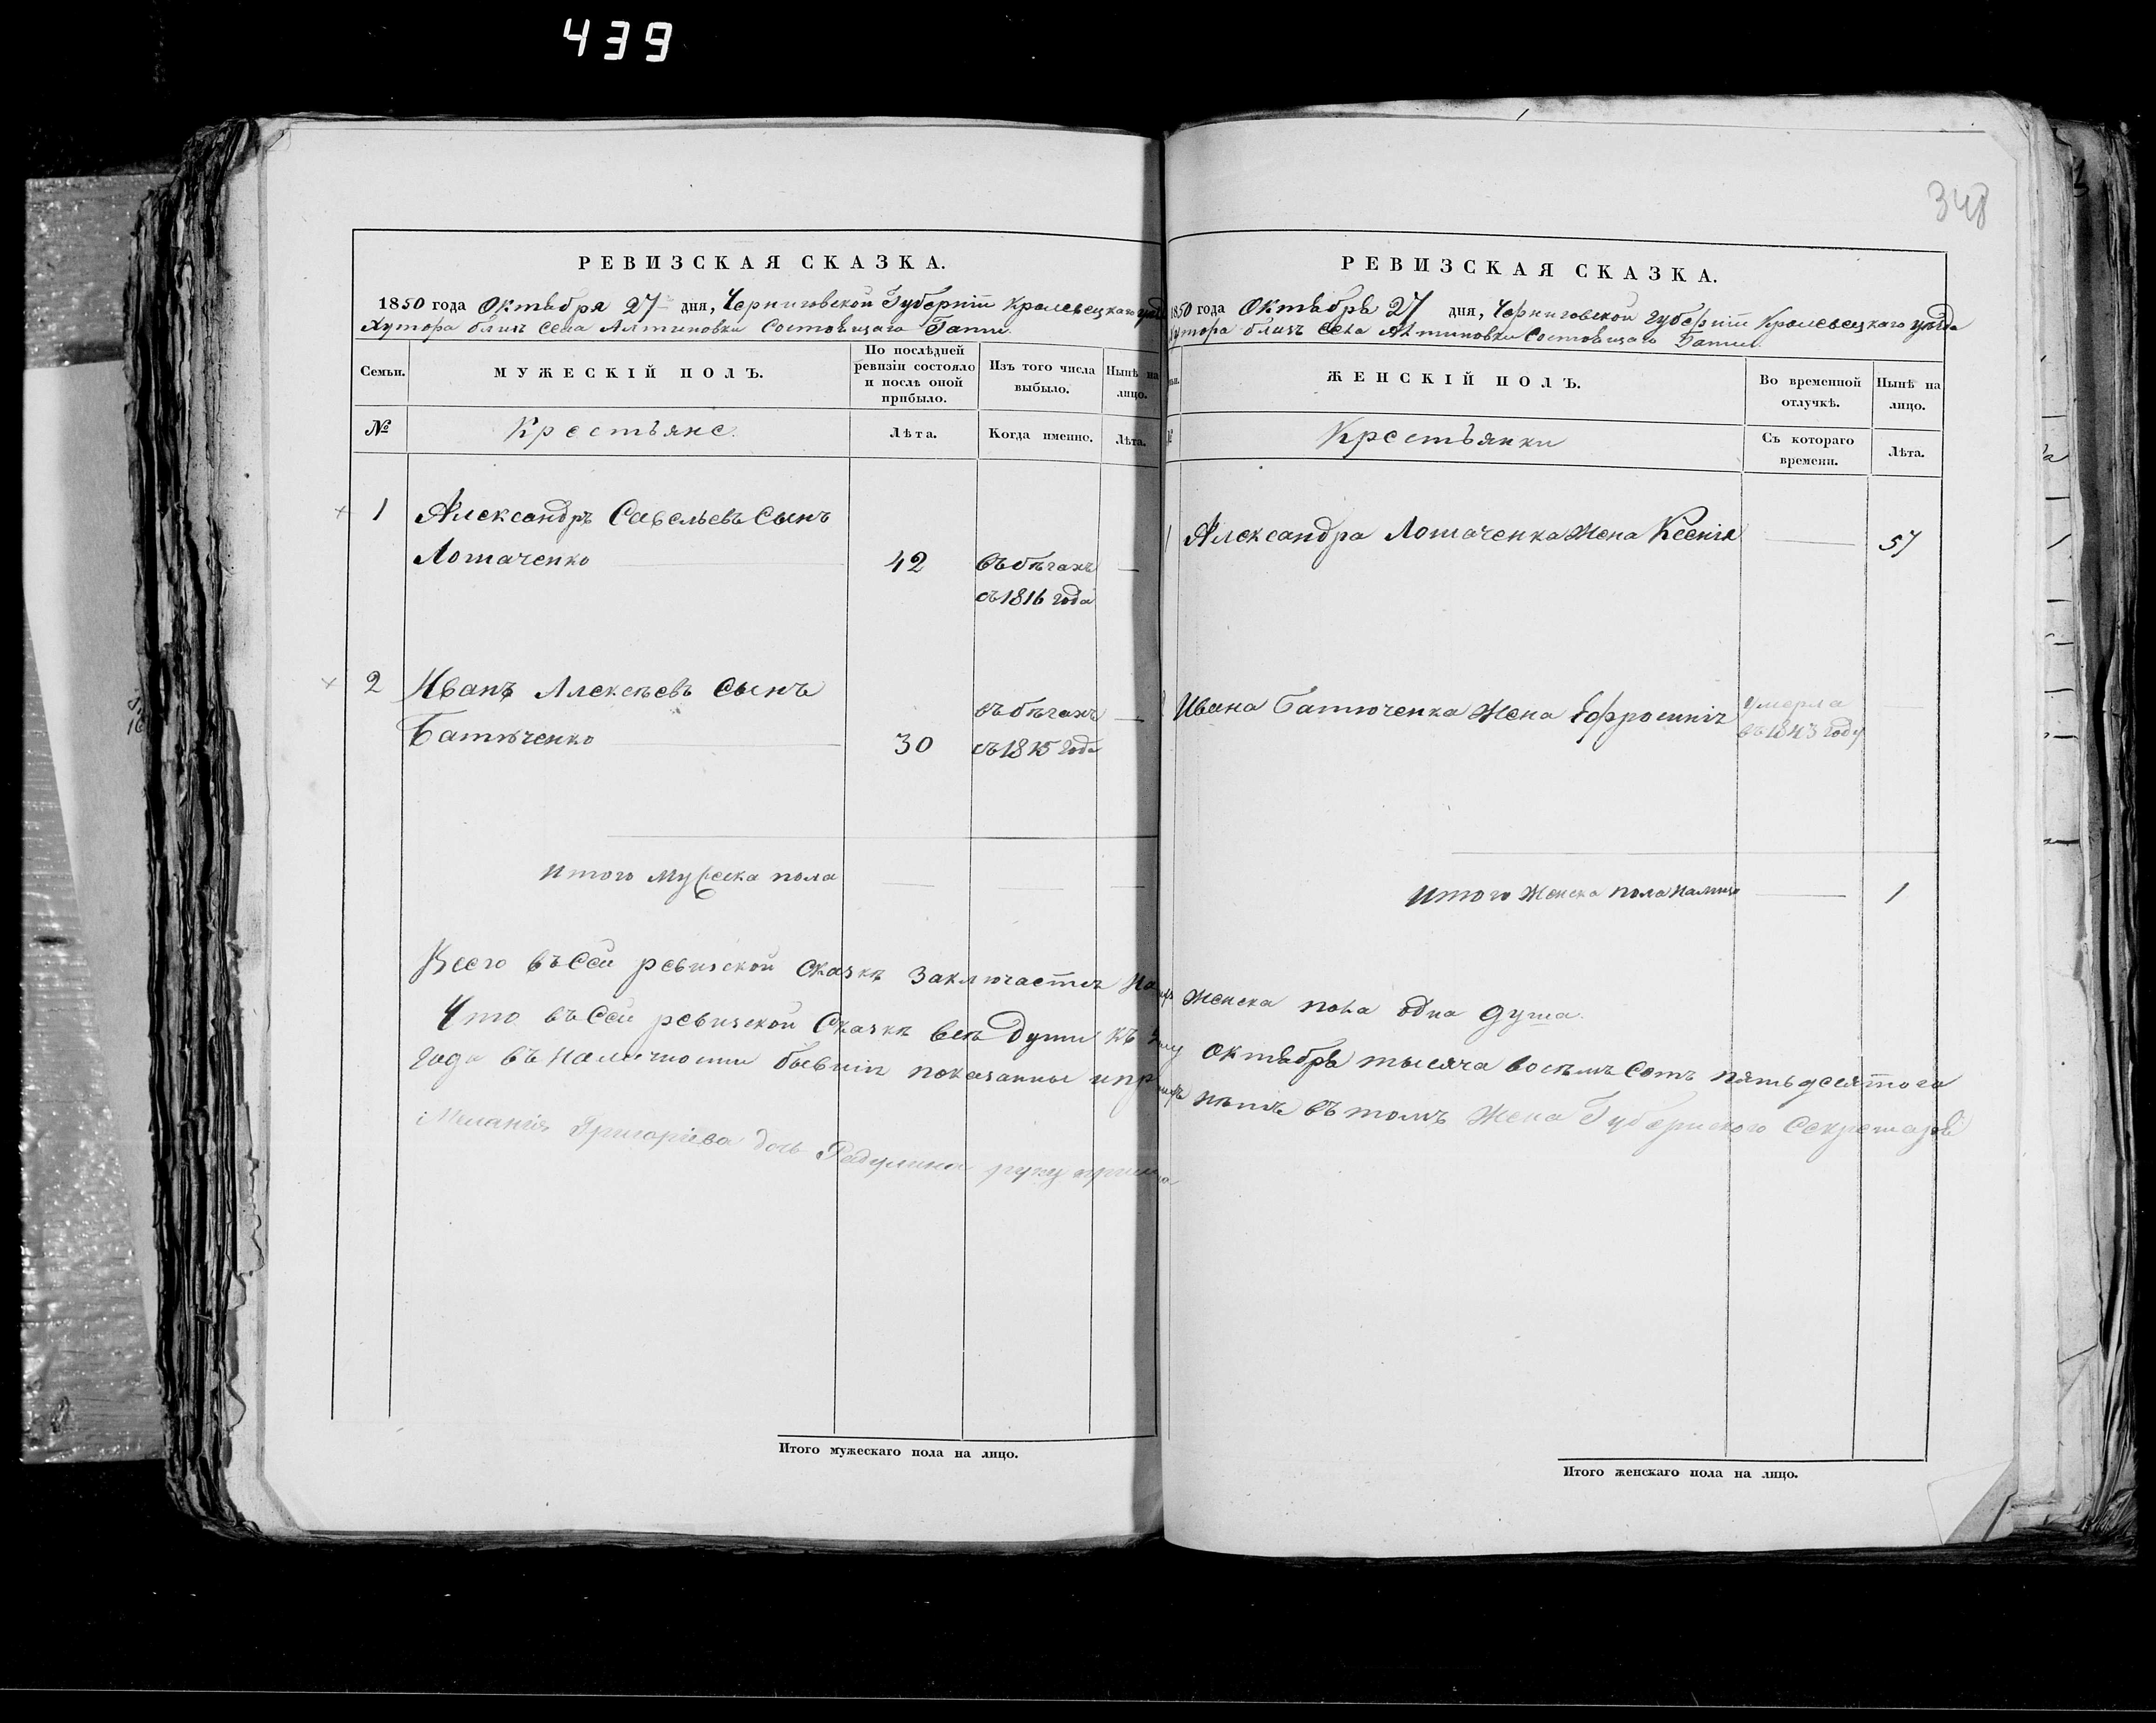 439
348
РЕВИЗСКАЯ СКАЗКА.
1850 года Октября 27 дня, Черниговской Губерніи Кролевецкаго уѣзда
Хутора близъ села Алтиновки Состоящаго Гати
Семьи.
МУЖЕСКІЙ ПОЛЪ.
По послѣдней ревизіи состояло и послѣ оной прибыло.
Изъ того числа выбыло.
Нынѣ на лицо.
№
Крестьяне.
Лѣта.
Когда именно.
Лѣта.
1 Александръ Савельевъ Сынъ
Лотаченко 42 въ бѣгахъ —
съ 1816 года
2 Иванъ Алексѣевъ Сынъ
въ бѣгахъ —
Батюченко 30 съ 1815 года
Итого Мужеска пола — — —
Всего въ Сей ревизской Сказкѣ Заключается
Что въ Сей ревизской Сказкѣ всѣ души къ
Года въ наличности бывшія показанны
Меланія Григоріева дочь руку
Итого мужескаго пола на лицо.
РЕВИЗСКАЯ СКАЗКА.
1850 года Октября 27 дня, Черниговской Губерніи Кролевецкаго уѣзда
Хутора близъ Села Алтиновки Состоящаго Гати
ЖЕНСКІЙ ПОЛЪ.
Во временной отлучкѣ.
Нынѣ на лицо.
Крестьянки
Съ котораго времени.
Лѣта.
1 Александра Лотаченка Жена Ксенія — 57
Ивана Батюченка Жена Ефросинія Умерла
въ 1843 году
Итого Женска пола налицо — 1
Женска пола одна душа.
Октября тысяча восемь Сотъ пятьдесятого
нѣтъ въ томъ Жена Губернского Секретаря
Итого женскаго пола на лицо.